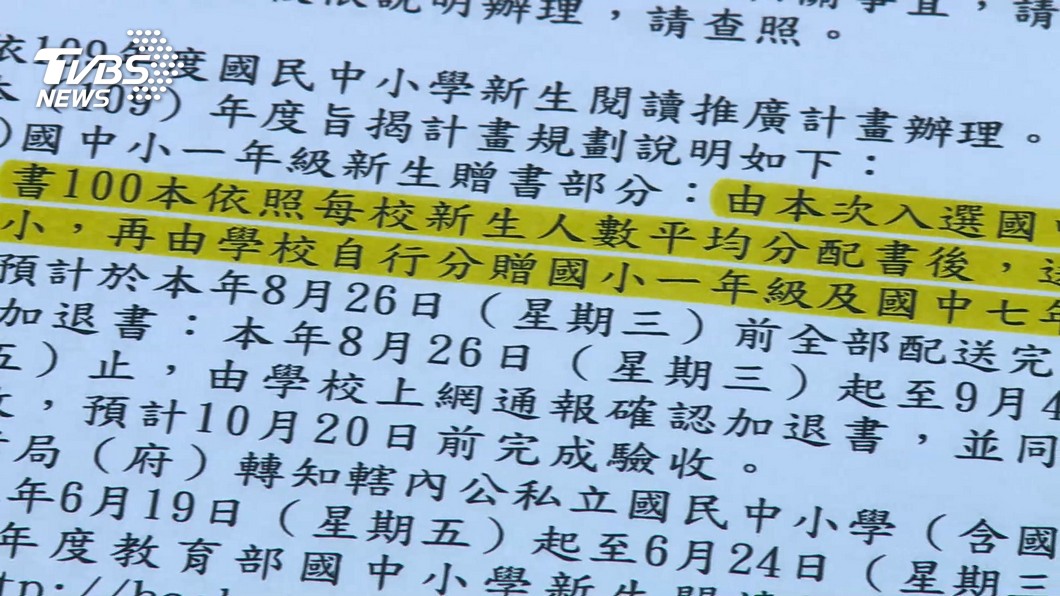 說明辦理，請查照。
TVBS
NEWS
依109年度國民中小學新生閱讀推廣計畫辦理。
(109)年度旨揭計畫規劃說明如下：
)國中小一年級新生贈書部分：由本次入選國
書100本依照每校新生人數平均分配書後，
小，再由學校自行分贈國小一年級及國中七年
預計於本年8月26日（星期三）前全部配送完
加退書：本年8月26日（星期三）起至9月4
五）止，由學校上網通報確認加退書，並同
，預計10月20日前完成驗收。
局（府）轉知轄內公私立國民中小學（含國
年6月19日（星期五）起至6月24日（星期三
年度教育部國中小學新生閱